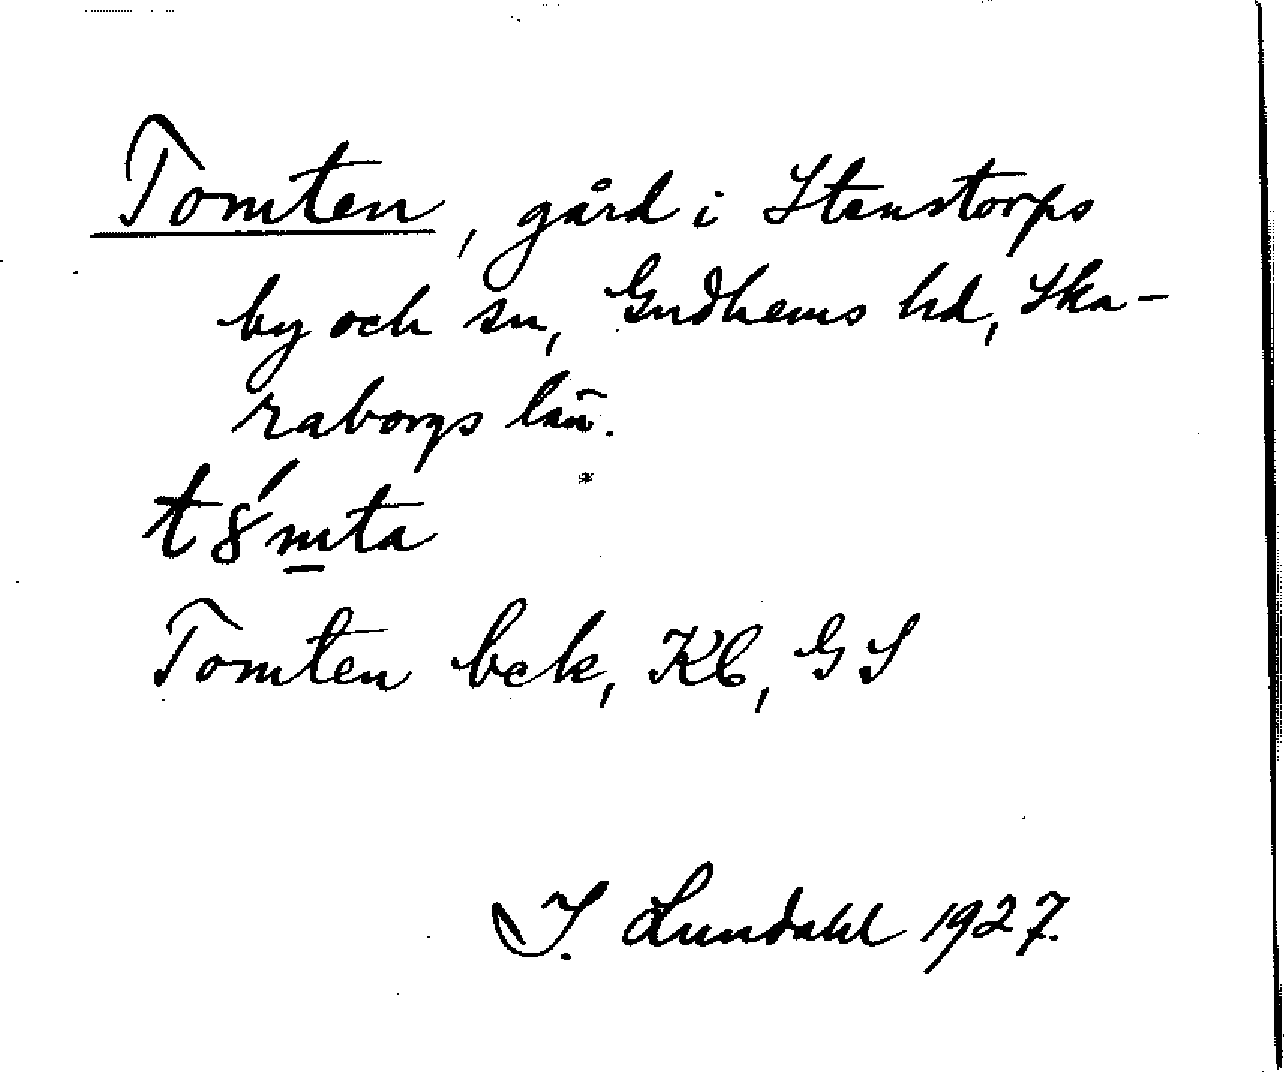 Tomten, gård i Stenstorps
by och sn, Gudhems hd, Ska-
raborgs län.
t8́m̲ta
Tomten bek, Kb, GS
I. Lundahl 1927.